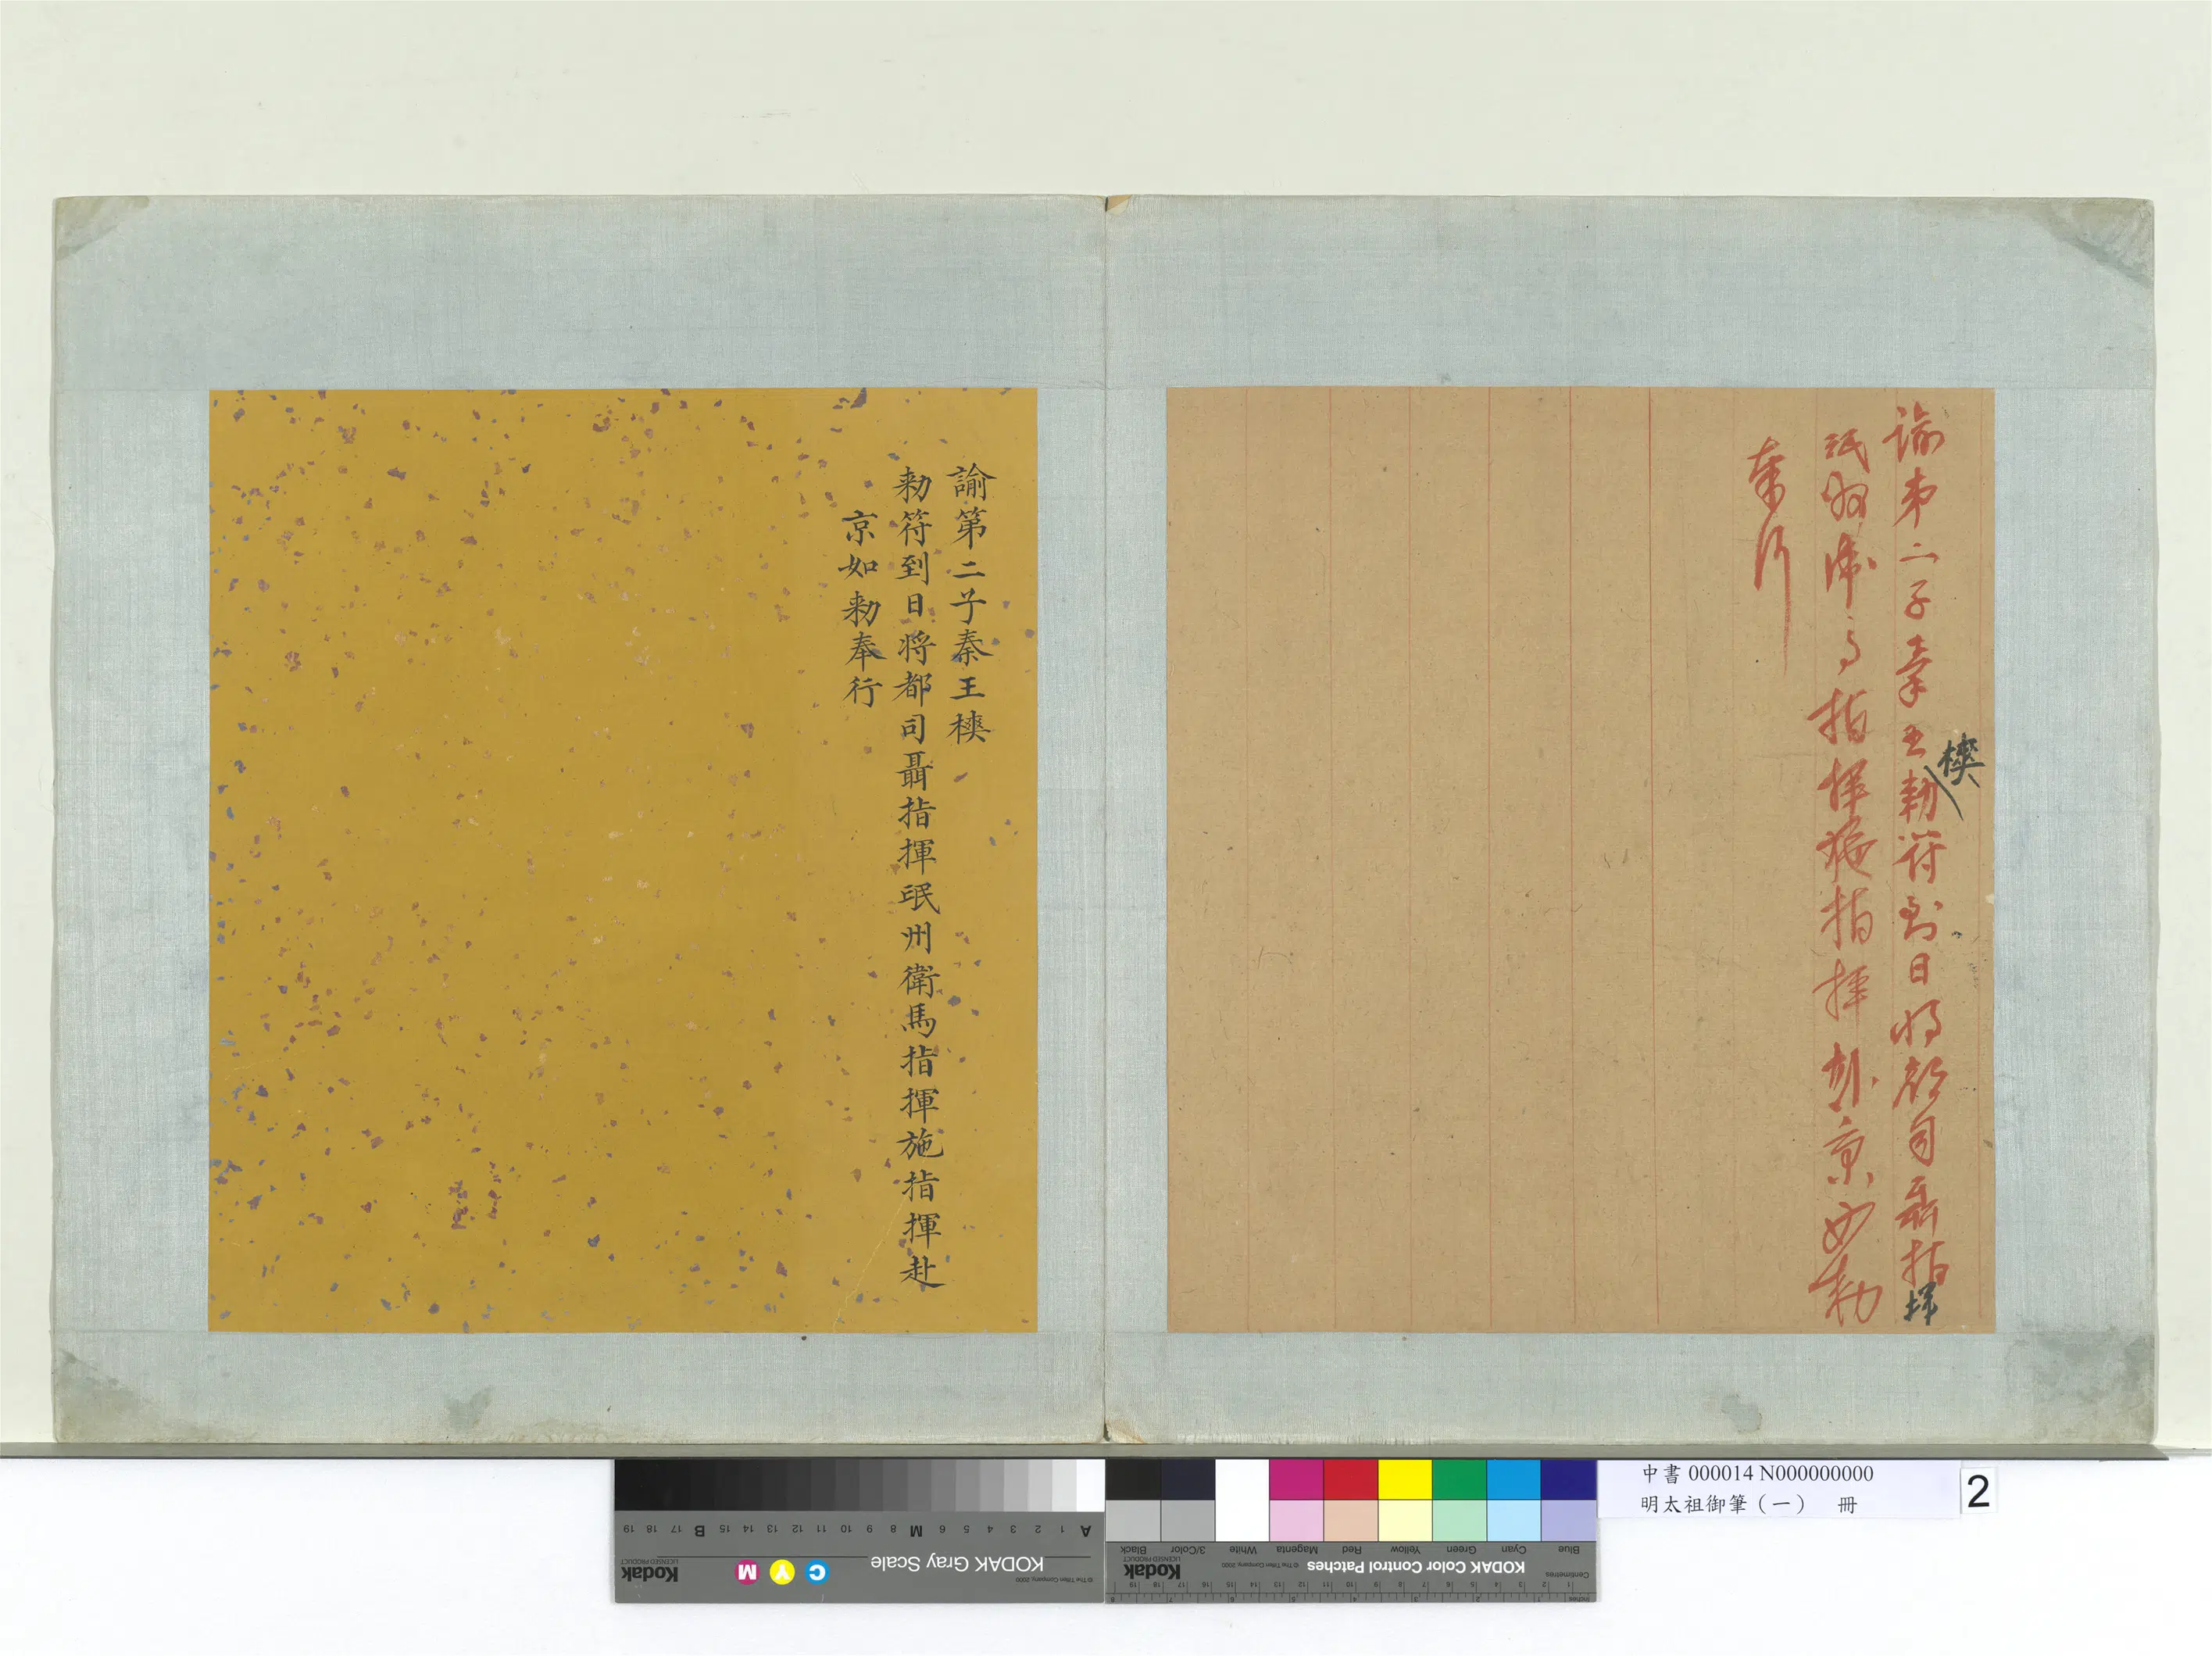 諭第二子秦王樉勅符到日将都司聶指揮
岷州衛馬指揮施指揮赴京如勅
奉行
諭第二子秦王樉
勅符到日将都司聶指揮岷州衛馬指揮施指揮赴
京如勅奉行
中書 000014 N000000000
明太祖御筆（一） 冊
2
KODAK Gray Scale
Kodak
LICENSED PRODUCT
C Y M
© The Tiffen Company, 2000
A 1 2 3 4 5 6 M 8 9 10 11 12 13 14 15 B 17 18 19
KODAK Color Control Patches
Kodak
LICENSED PRODUCT
© The Tiffen Company, 2000
Blue Cyan Green Yellow Red Magenta White 3/Color Black
Centimetres
Inches